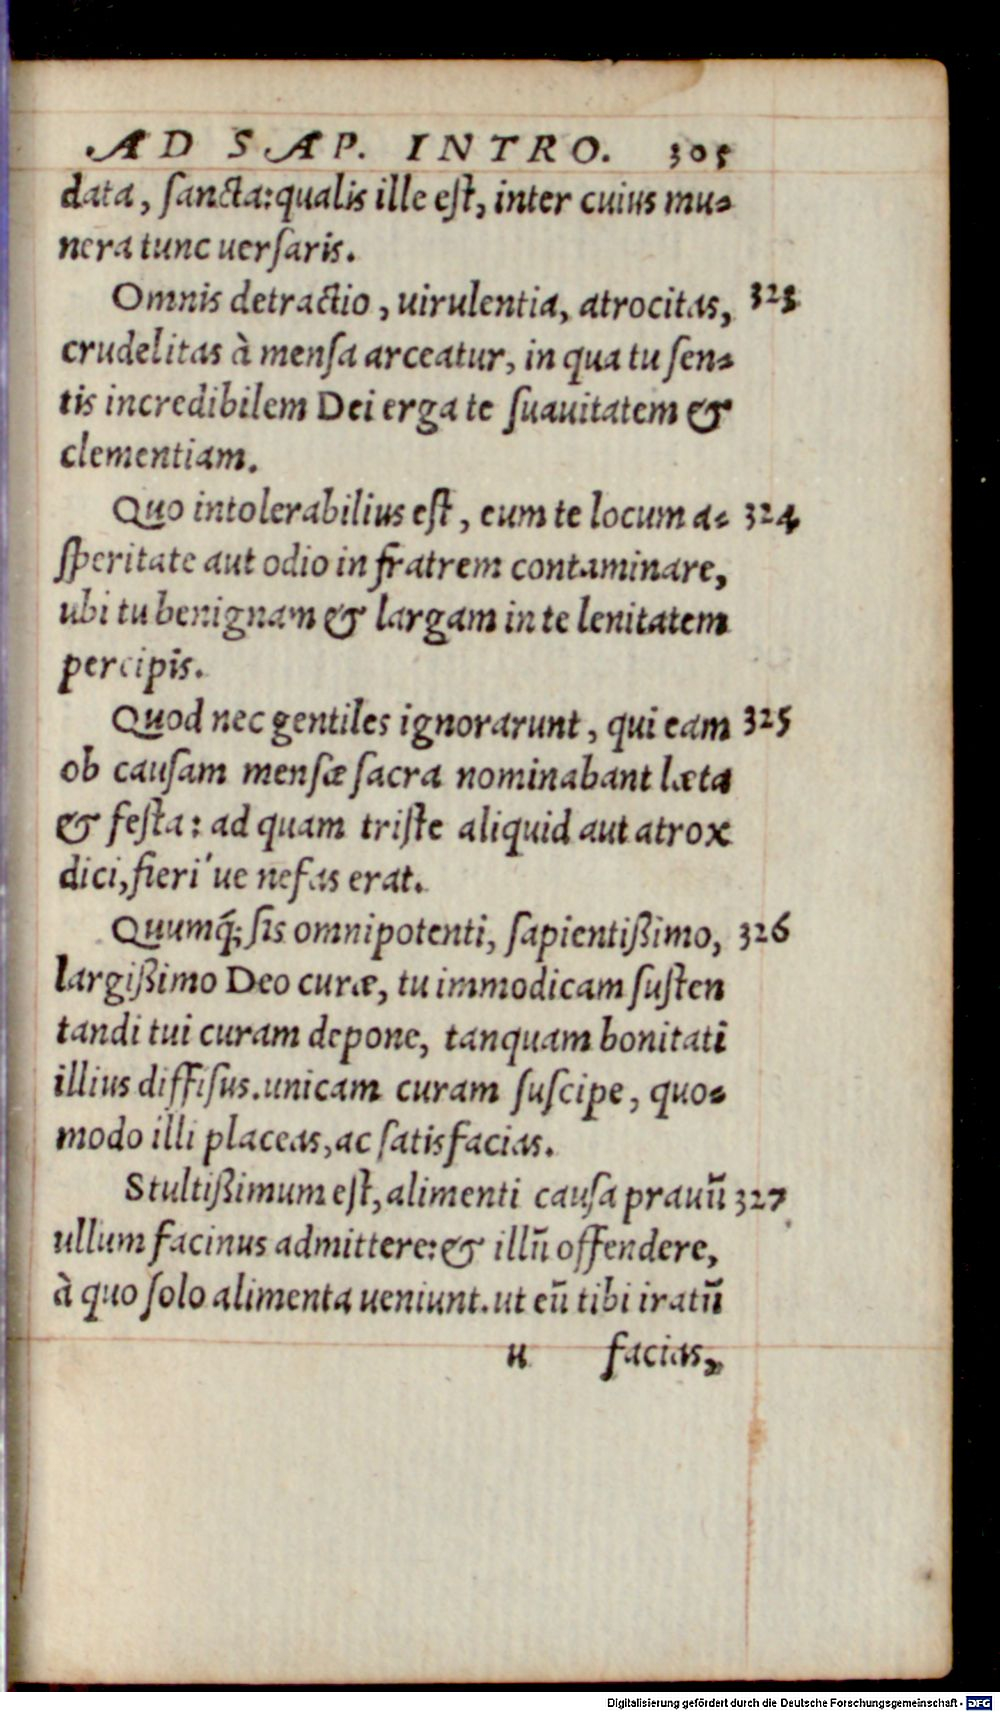 AD SAP. INTRO. 305
data, ſancta: qualis ille eſt, inter cuius mu-
nera tunc uerſaris.
Omnis detractio, uirulentia, atrocitas, 323
crudelitas à menſa arceatur, in qua tu ſen-
tis incredibilem Dei erga te ſuauitatem &
clementiam.
Quo intolerabilius eſt, eum te locum a- 324
ſperitate aut odio in fratrem contaminare,
ubi tu benignam & largam in te lenitatem
percipis.
Quod nec gentiles ignorarunt, qui eam 325
ob cauſam menſæ ſacra nominabant læta
& feſta: ad quam triſte aliquid aut atrox
dici, fieri´ue nefas erat.
Quumq́; ſis omnipotenti, ſapientißimo, 326
largißimo Deo curæ, tu immodicam ſuſten
tandi tui curam depone, tanquam bonitati
illius diffiſus. unicam curam ſuſcipe, quo-
modo illi placeas, ac ſatisfacias.
Stultißimum eſt, alimenti cauſa prauũ 327
ullum facinus admittere: & illũ offendere,
à quo ſolo alimenta ueniunt. ut eũ tibi iratũ
u facias,
Digitalisierung gefördert durch die Deutsche Forschungsgemeinschaft - DFG